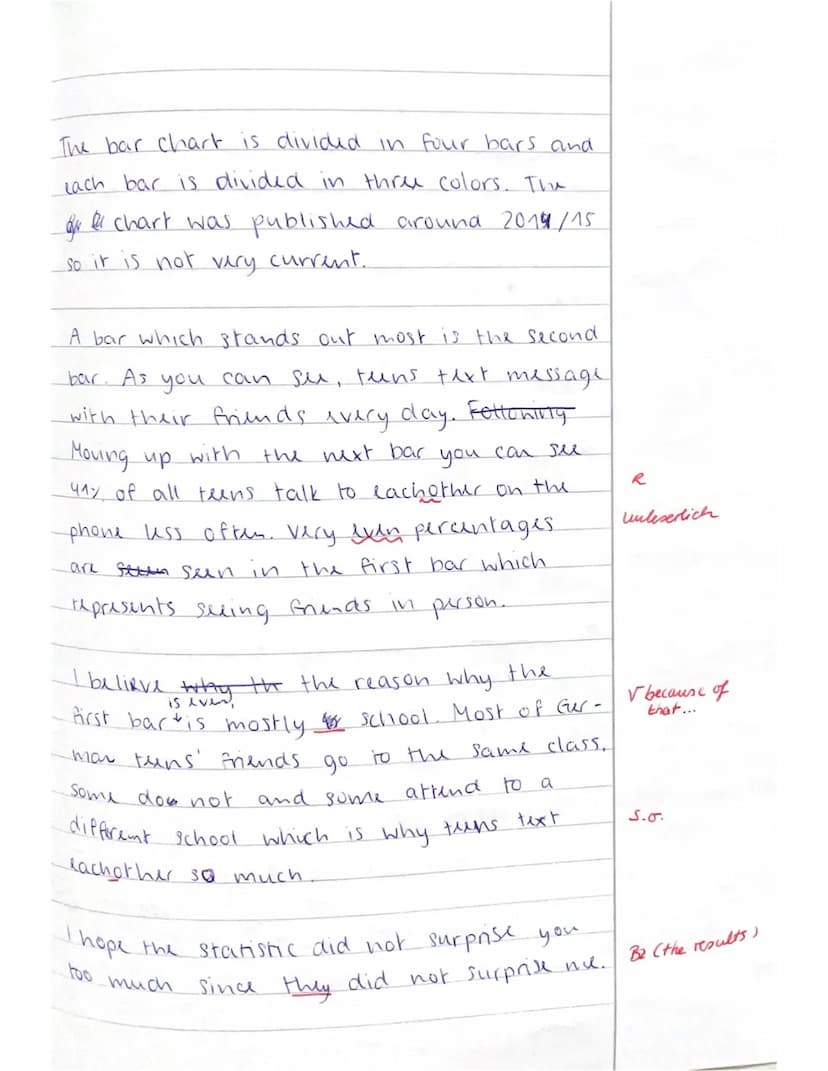 The bar chart is divided in four bars and
each bar is divided in three colors. The
chart was published around 2014/15
so it is not very current.
A bar which stands out most is the second
bar. As you can see, teens text message
with their friends every day. Following
Moving up with the next bar you can see
41% of all teens talk to eachother on the
R
phone less often. Very even percentages
unleserlich
are seen in the first bar which
represents seeing friends in person.
I believe why th the reason why the
V because of
that...
is even,
first bar is mostly school. Most of Ger-
man teens' friends go to the same class,
some do not and some attend to a
different school which is why teens text
s.o.
eachother so much.
I hope the statistic did not surprise you
Bz (the results)
too much since they did not surprise me.